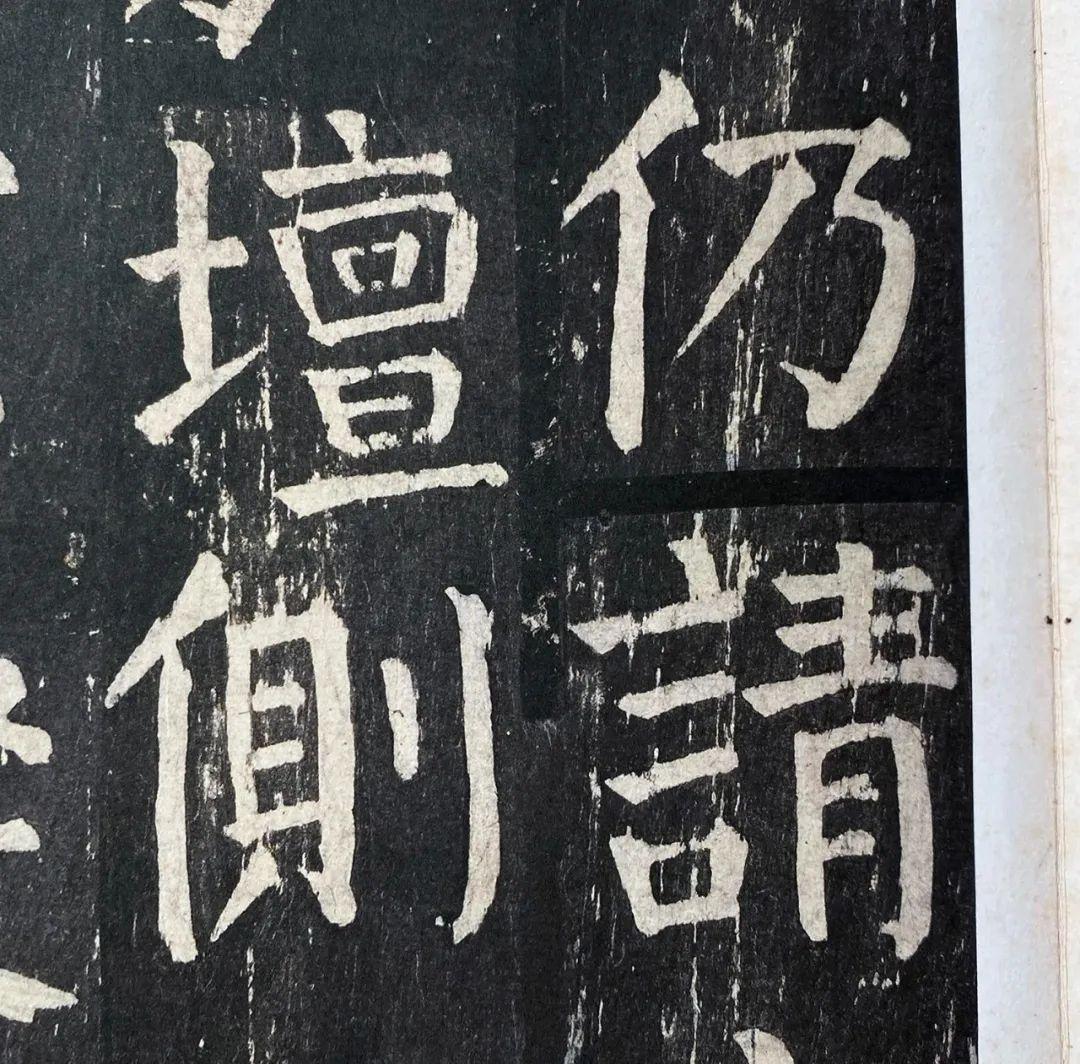 仍請
壇側